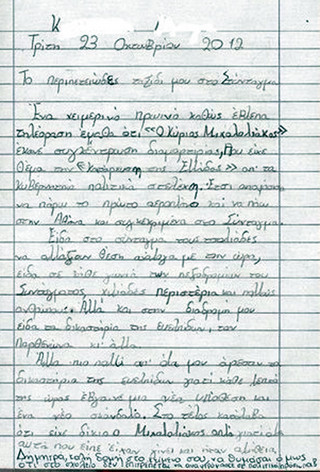 Τρίτη 23 Οκτωβρίου 2012
Το περιπετειώδες ταξίδι μου στο Σύνταγμα
Ένα χειμερινό πρωινό καθώς έβλεπα
τηλεόραση έμαθα ότι «Ο Κύριος Μιχαλολιάκος»
έκανε συγκέντρωση διαμαρτυρίας, που είχε
θέμα την της Ελλάδας» απ' τα
κυβερνητικά πολιτικά στελέχη. Έτσι αποφάσισα
να πάρω το πρώτο αεροπλάνο και να πάω
στην Αθήνα και συγκεκριμένα στο Σύνταγμα.
Είδα στο σύνταγμα τους τσολιάδες
να αλλάζουν θέση ανάλογα με την ώρα,
είδα σε κάθε γωνιά των πεζοδρομίων του
Συντάγματος χιλιάδες περιστέρια και πολλούς
ανθρώπους. Αλλά και στην διαδρομή μου
είδα τα δικαστήρια της Ευελπίδων, τον
Παρθενώνα κι' άλλα.
Αλλά πιο πολύ απ' όλα μου άρεσαν τα
δικαστήρια της ευελπίδων γιατί κάθε λεπτό
της ώρας έβγαινε μια νέα υπόθεση και
ένα νέο σκάνδαλο. Στο τέλος κατάλαβα
ότι είχε δίκιο ο Μιχαλολιάκος γιατί όλα
αυτά που είπε είχαν γίνει και ήταν αλήθεια.
Δήμητρα, καλή δομή στο κείμενό σου, να θυμάσαι όμως
ότι στο σχολείο δεν επιτρέπεται να αναφερόμαστε σε πολιτικά